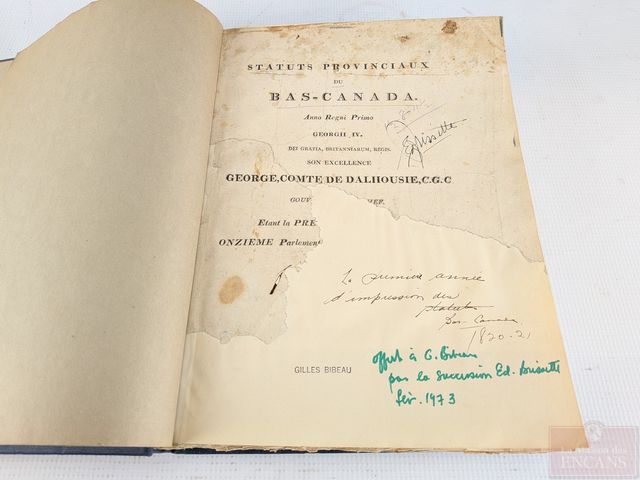 STATUTS PROVINCIAUX
DU
BAS-CANADA.
Anno Regni Primo
GEORGII IV.
DEI GRATIA, BRITANNIARUM, REGIS.
SON EXCELLENCE
GEORGE, COMTE DE DALHOUSIE, C.G.C
GOUV
HEF.
Etant la PRE
ONZIEME Parlement
Brissette
La premiere année
d'impression des
statuts
Bas-Canada
1820-21
GILLES BIBEAU
offert à G. Bibeau
par la succession Ed. Brissette
fév. 1973
La Maison des
ENCANS